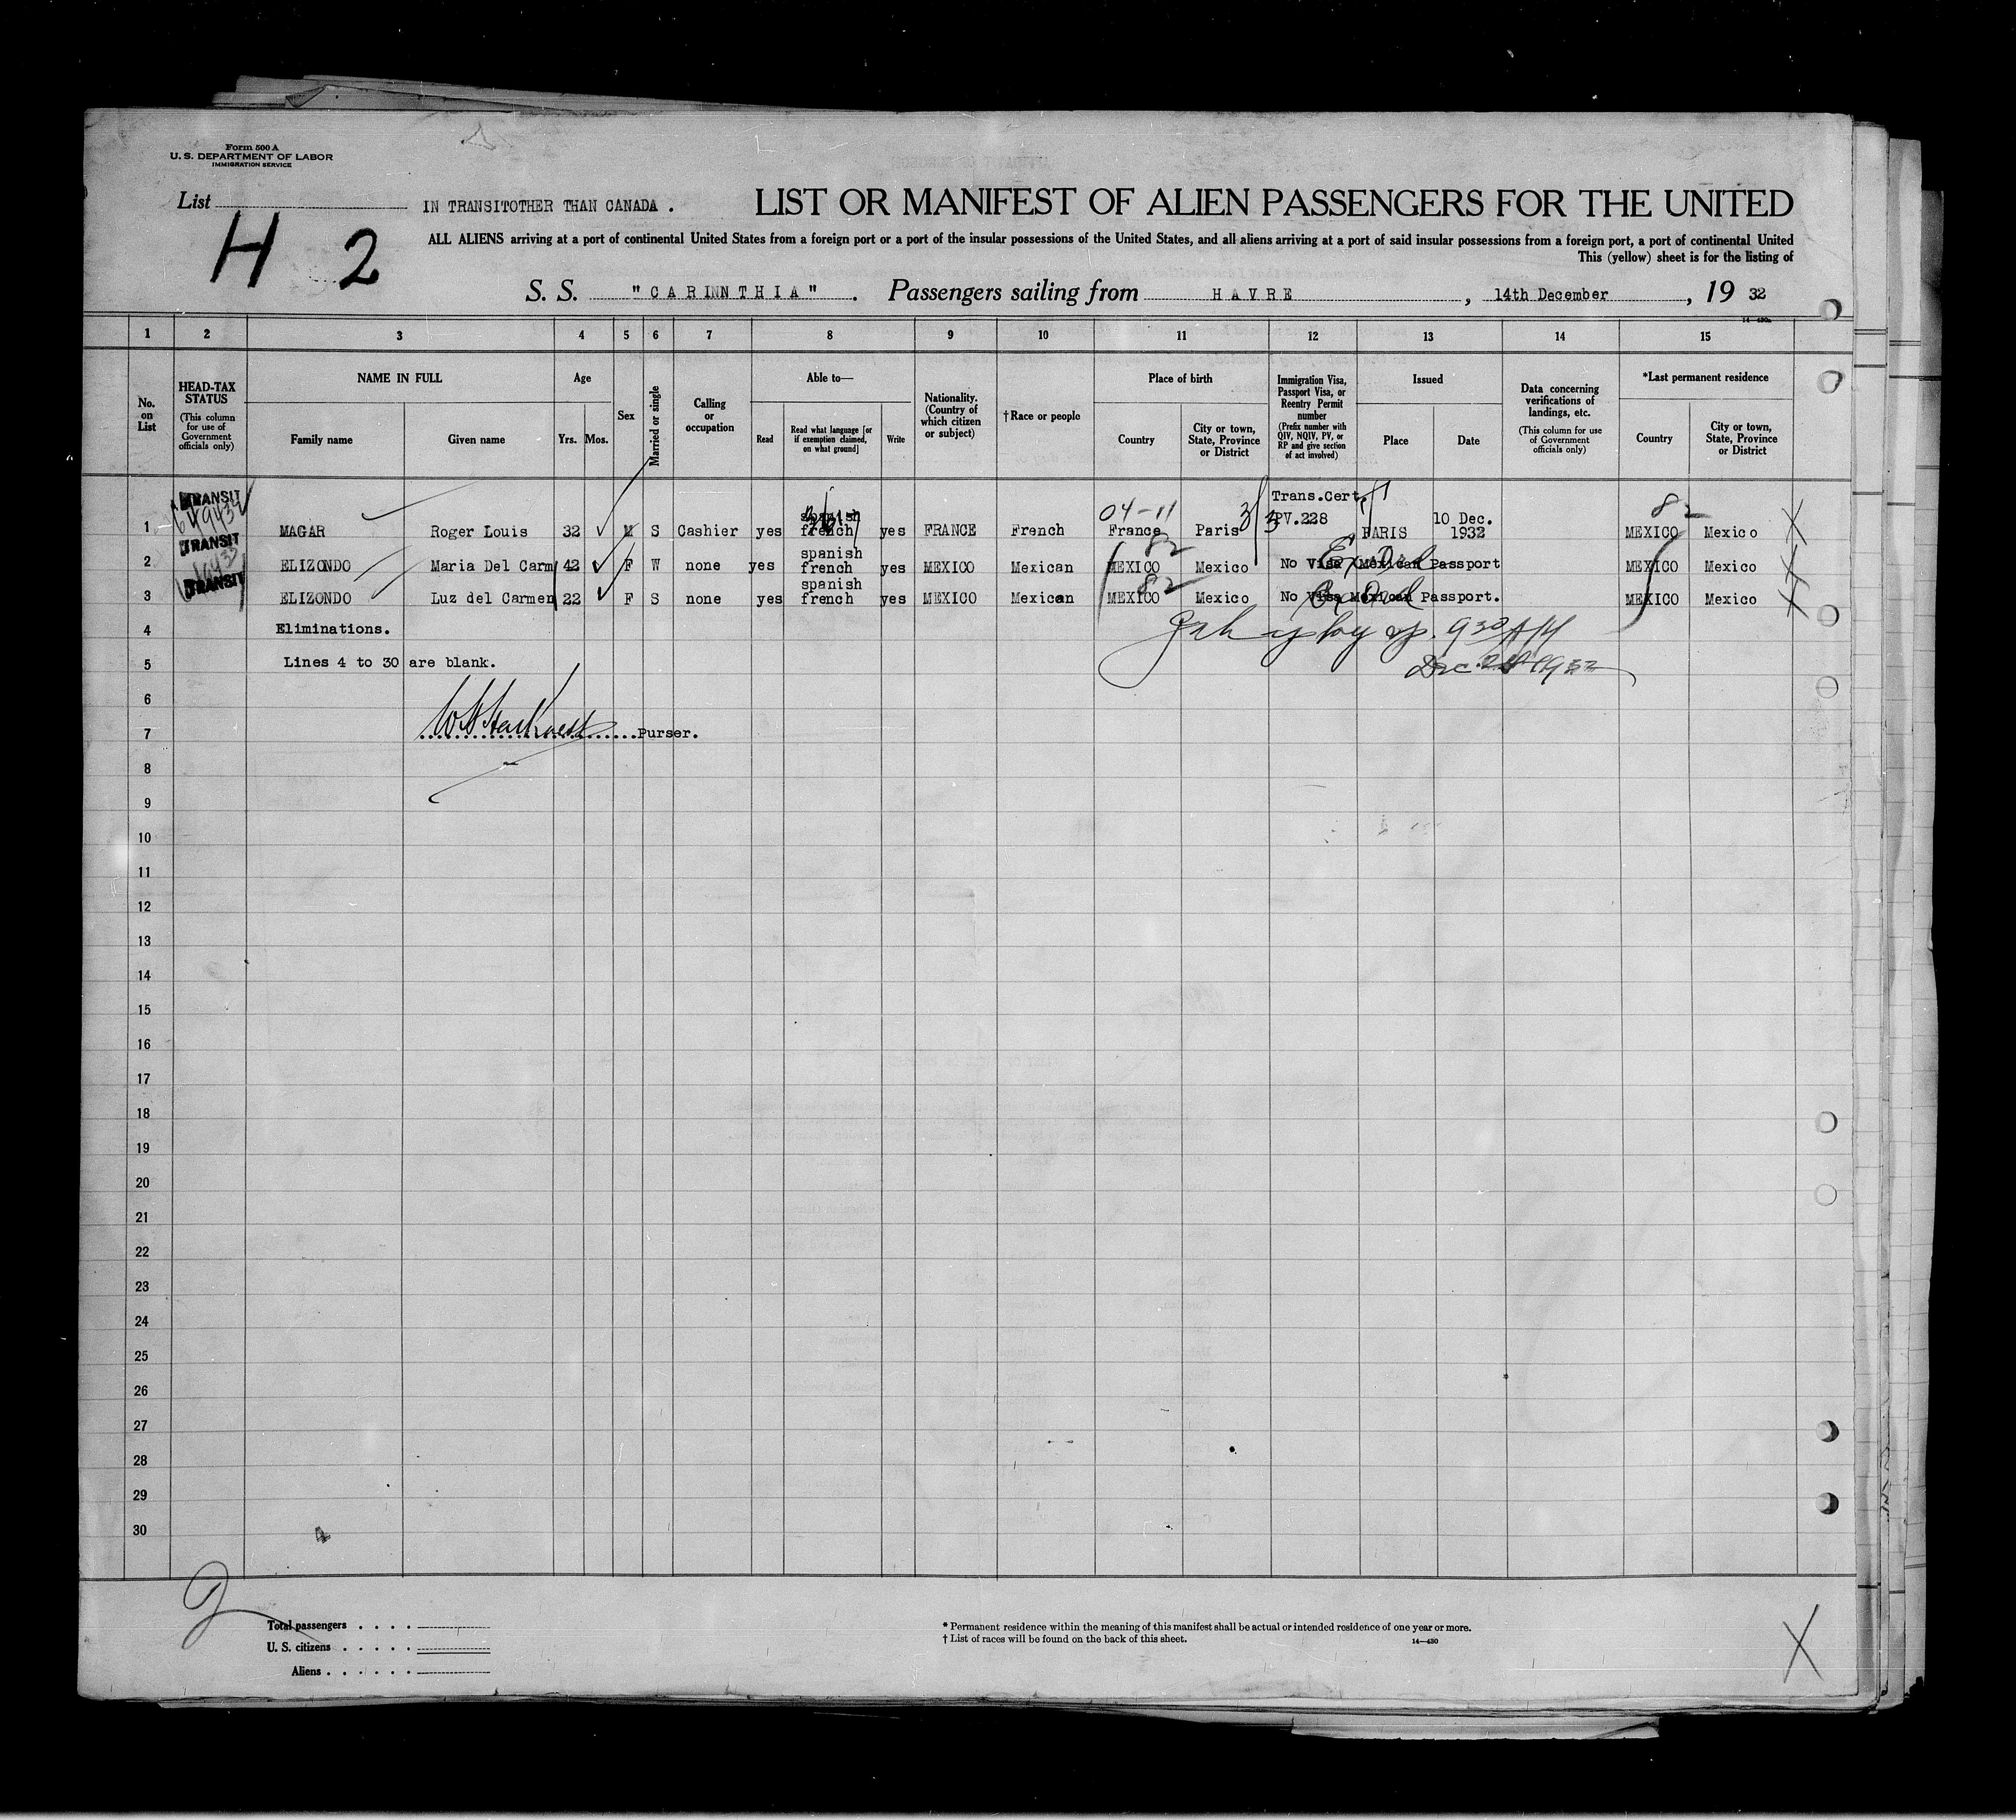 Form 500 A
U. S. DEPARTMENT OF LABOR
IMMIGRATION SERVICE
List
IN TRANSITOTHER THAN CANADA .
LIST OR MANIFEST OF ALIEN PASSENGERS FOR THE UNITED
H 2
ALL ALIENS arriving at a port of continental United States from a foreign port or a port of the insular possessions of the United States, and all aliens arriving at a port of said insular possessions from a foreign port, a port of continental United
This (yellow) sheet is for the listing of
S. S. "CARINNTHIA" . Passengers sailing from HAVRE , 14th December , 19 32
14—430a
1 2 3 4 5 6 7 8 9 10 11 12 13 14 15
No. on List
HEAD-TAX STATUS
(This column for use of Government officials only)
NAME IN FULL
Family name
Given name
Age
Yrs. Mos.
Sex
Married or single
Calling or occupation
Able to—
Read
Read what language [or if exemption claimed, on what ground]
Write
Nationality. (Country of which citizen or subject)
†Race or people
Place of birth
Country
City or town, State, Province or District
Immigration Visa, Passport Visa, or Reentry Permit number
(Prefix number with QIV, NQIV, PV, or RP and give section of act involved)
Issued
Place
Date
Data concerning verifications of landings, etc.
(This column for use of Government officials only)
*Last permanent residence
Country
City or town, State, Province or District
TRANSIT
04-11
Trans.Cert.
82
1 MAGAR Roger Louis 32 M S Cashier yes spanish french yes FRANCE French France Paris PV.228 PARIS 10 Dec. 1932 MEXICO Mexico
TRANSIT
82
2 ELIZONDO Maria Del Carm 42 F W none yes spanish french yes MEXICO Mexican MEXICO Mexico No Visa Mexican Passport MEXICO Mexico
TRANSIT
82
3 ELIZONDO Luz del Carmen 22 F S none yes spanish french yes MEXICO Mexican MEXICO Mexico No Visa Mexican Passport. MEXICO Mexico
4 Eliminations.
5 Lines 4 to 30 are blank.
6
7 Purser.
8
9
10
11
12
13
14
15
16
17
18
19
20
21
22
23
24
25
26
27
28
29
30
Total passengers . . . .
U. S. citizens . . . . .
Aliens . . . . . .
* Permanent residence within the meaning of this manifest shall be actual or intended residence of one year or more.
† List of races will be found on the back of this sheet.
14—430
X